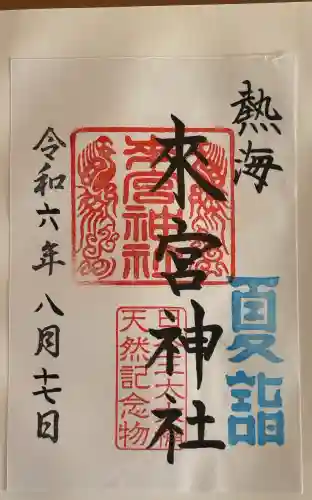 熱海
夏詣
來宮神社
來宮神社
天然記念物
令和六年八月十七日